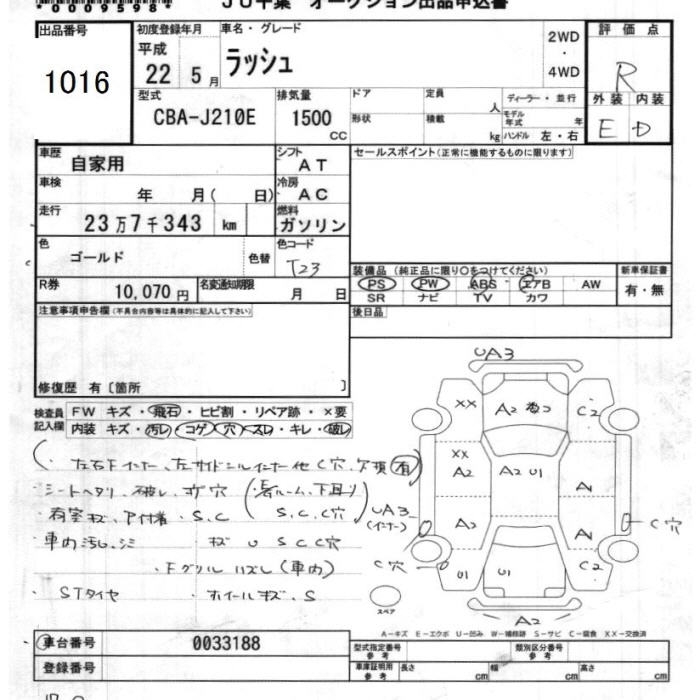 JU千葉 オークション出品申込書
出品番号 1016
初度登録年月 平成 22 5月
車名・グレード ラッシュ
2WD・4WD
評価点 R
外装 内装
E D
型式 CBA-J210E
排気量 1500 CC
ドア 定員 人
形状 積載 kg
ディーラー・並行
モデル年式 年
ハンドル 左・右
車歴 自家用
シフト AT
セールスポイント(正常に機能するものに限ります)
車検 年 月( 日)
冷房 AC
走行 23万7千343 km
燃料 ガソリン
色 ゴールド 色替
色コード T23
装備品 (純正品に限り○をつけてください)
新車保証書
PS PW ABS エアB AW
有・無
SR ナビ TV カワ
R券 10,070円
名変通知期限 月 日
後日品
注意事項申告欄(不具合内容等は具体的に記入して下さい)
修復歴 有〔箇所 〕
検査員記入欄
FW キズ・飛石・ヒビ割・リペア跡・×要
内装 キズ・汚レ・コゲ・穴・スレ・キレ・破レ
シートヘタリ、破レ、コゲ穴
S.C
S.C.C穴
車内汚レ、シミ
キズ U S C C穴
・Fグリルハズレ(車内)
・STタイヤ
・ホイールキズ、S
UA3
XX A2 C2
XX
A2 A2 U1 A
UA3
(インナー)
A2 A C穴
C穴 U1 U1 C2
スペア
A2
A－キズ E－エクボ U－凹み W－補修跡 S－サビ C－腐食 XX－交換済
車台番号 0033188
型式指定番号 参考
類別区分番号 参考
登録番号
車庫証明用 参考 長さ cm 幅 cm 高さ cm